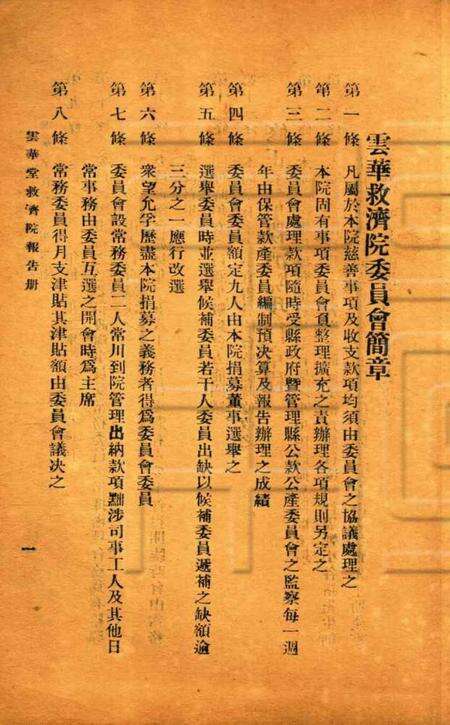 雲華救濟院委員會簡章
第一條 凡屬於本院慈善事項及收支款項均須由委員會之協議處理之
第二條 本院固有事項委員會負整理擴充之責辦理各項規則另定之
第三條 委員會處理款項隨時受縣政府暨管理縣公款公產委員會之監察每一週
年由保管款產委員編制預决算及報告辦理之成績
第四條 委員會委員額定九人由本院捐募董事選舉之
第五條 選舉委員時並選舉候補委員若干人委員出缺以候補委員遞補之缺額逾
三分之一應行改選
第六條 衆望允孚歷盡本院捐募之義務者得爲委員會委員
第七條 委員會設常務委員二人常川到院管理出納款項黜涉司事工人及其他日
常事務由委員互選之開會時爲主席
第八條 常務委員得月支津貼其津貼額由委員會議决之
雲華堂救濟院報告册
一